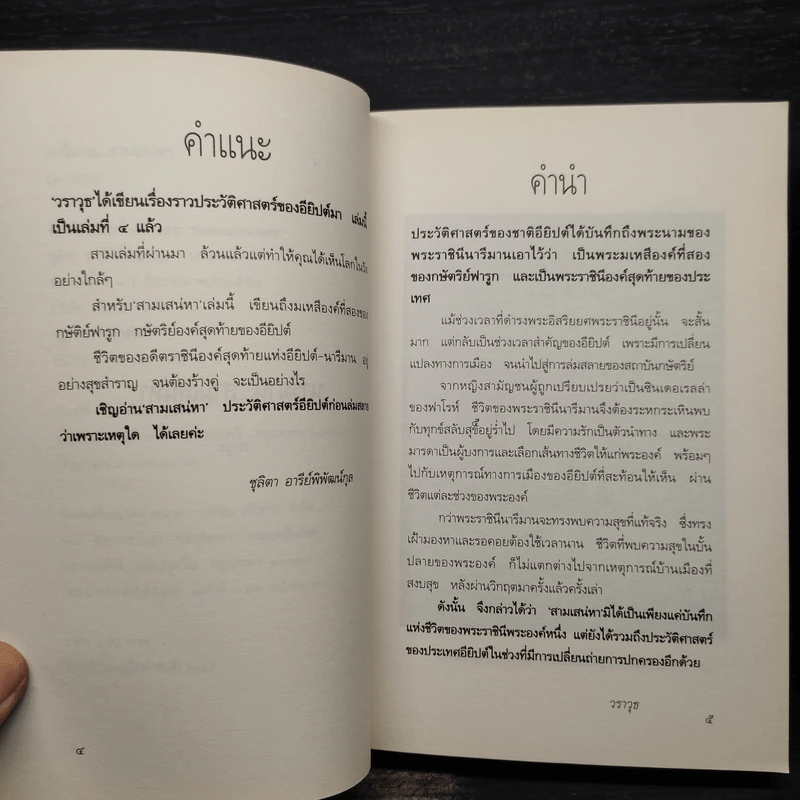 คำแนะ
'วราวุธ'ได้เขียนเรื่องราวประวัติศาสตร์ของอียิปต์มา เล่มนี้
เป็นเล่มที่ ๔ แล้ว
สามเล่มที่ผ่านมา ล้วนแล้วแต่ทำให้คุณได้เห็นโลกในวัง
อย่างใกล้ๆ
สำหรับ'สามเสน่หา'เล่มนี้ เขียนถึงมเหสีองค์ที่สองของ
กษัติย์ฟารูก กษัตริย์องค์สุดท้ายของอียิปต์
ชีวิตของอดีตราชินีองค์สุดท้ายแห่งอียิปต์-นารีมาน
อย่างสุขสำราญ จนต้องร้างคู่ จะเป็นอย่างไร
เชิญอ่าน'สามเสน่หา' ประวัติศาสตร์อียิปต์ก่อนล่มสลาย
ว่าเพราะเหตุใด ได้เลยค่ะ
ชุลิตา อารีย์พิพัฒน์กุล
๔
คำนำ
ประวัติศาสตร์ของชาติอียิปต์ได้บันทึกถึงพระนามของ
พระราชินีนารีมานเอาไว้ว่า เป็นพระมเหสีองค์ที่สอง
ของกษัตริย์ฟารูก และเป็นพระราชินีองค์สุดท้ายของประ
เทศ
แม้ช่วงเวลาที่ดำรงพระอิสริยยศพระราชินีอยู่นั้น จะสั้น
มาก แต่กลับเป็นช่วงเวลาสำคัญของอียิปต์ เพราะมีการเปลี่ยน
แปลงทางการเมือง จนนำไปสู่การล่มสลายของสถาบันกษัตริย์
จากหญิงสามัญชนผู้ถูกเปรียบเปรยว่าเป็นซินเดอเรลล่า
ของฟาโรห์ ชีวิตของพระราชินีนารีมานจึงต้องระหกระเหินพบ
กับทุกข์สลับสุขี้อยู่ร่ำไป โดยมีความรักเป็นตัวนำทาง และพระ
มารดาเป็นผู้บงการและเลือกเส้นทางชีวิตให้แก่พระองค์ พร้อมๆ
ไปกับเหตุการณ์ทางการเมืองของอียิปต์ที่สะท้อนให้เห็น ผ่าน
ชีวิตแต่ละช่วงของพระองค์
กว่าพระราชินีนารีมานจะทรงพบความสุขที่แท้จริง ซึ่งทรง
เฝ้ามองหาและรอคอยต้องใช้เวลานาน ชีวิตที่พบความสุขในบั้น
ปลายของพระองค์ ก็ไม่แตกต่างไปจากเหตุการณ์บ้านเมืองที่
สงบสุข หลังผ่านวิกฤตมาครั้งแล้วครั้งเล่า
ดังนั้น จึงกล่าวได้ว่า 'สามเสน่หา'มิได้เป็นเพียงแค่บันทึก
แห่งชีวิตของพระราชินีพระองค์หนึ่ง แต่ยังได้รวมถึงประวัติศาสตร์
ของประเทศอียิปต์ในช่วงที่มีการเปลี่ยนถ่ายการปกครองอีกด้วย
วราวุธ
๕